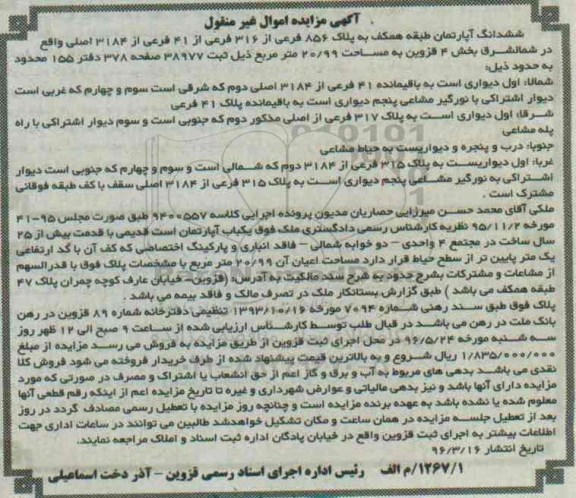 آگهی مزایده اموال غیر منقول
ششدانگ آپارتمان طبقه همکف به پلاک ۸۵۶ فرعی از ۳۱۶ فرعی از ۴۱ فرعی از ۳۱۸۴ اصلی واقع
در شمالشرق بخش ۴ قزوین به مساحت ۲۰/۹۹ متر مربع ذیل ثبت ۳۸۹۷۷ صفحه ۳۷۸ دفتر ۱۵۵ محدود
به حدود ذیل:
شمالا: اول دیواری است به باقیمانده ۴۱ فرعی از ۳۱۸۴ اصلی دوم که شرقی است سوم و چهارم که غربی است
دیوار اشتراکی با نورگیر مشاعی پنجم دیواری است به باقیمانده پلاک ۴۱ فرعی
شرقا: اول دیواری است به پلاک ۳۱۷ فرعی از اصلی مذکور دوم که جنوبی است و سوم دیوار اشتراکی با راه
پله مشاعی
جنوبا: درب و پنجره و دیواریست به حیاط مشاعی
غربا: اول دیواریست به پلاک ۳۱۵ فرعی از ۳۱۸۴ دوم که شمالی است و سوم و چهارم که جنوبی است دیوار
اشتراکی به نورگیر مشاعی پنجم دیواری است به پلاک ۳۱۵ فرعی از ۳۱۸۴ اصلی سقف با کف طبقه فوقانی
مشترک است .
ملکی آقای محمد حسن میرزایی حصاریان مدیون پرونده اجرایی کلاسه ۹۴۰۰۵۵۷ طبق صورت مجلس ۹۵-۴۱
مورخه ۹۵/۱۱/۲ نظریه کارشناس رسمی دادگستری ملک فوق یکباب آپارتمان است قدیمی با قدمت بیش از ۲۵
سال ساخت در مجتمع ۴ واحدی - دو خوابه شمالی - فاقد انباری و پارکینگ اختصاصی که کف آن با گد ارتفاعی
یک متر پایین تر از سطح حیاط قرار دارد مساحت اعیان آن ۲۰/۹۹ متر مربع با مشخصات پلاک فوق با قدرالسهم
از مشاعات و مشترکات بشرح حدود به شرح سند مالکیت به آدرس: (قزوین - خیابان عارف کوچه چمران پلاک ۴۷
طبقه همکف می باشد ) طبق گزارش بستانکار ملک در تصرف مالک و فاقد بیمه می باشد .
پلاک فوق طبق سند رهنی شماره ۷۰۹۴ مورخه ۱۳۹۳/۱۰/۱۶ تنظیمی دفترخانه شماره ۸۹ قزوین در رهن
بانک ملت در رهن می باشد در قبال طلب توسط کارشناس ارزیابی شده از ساعت ۹ صبح الی ۱۲ ظهر روز
سه شنبه مورخه ۹۶/۵/۲۴ در محل اجرای ثبت قزوین از طریق مزایده به فروش می رسد مزایده از مبلغ
۱/۸۳۵/۰۰۰/۰۰۰ ریال شروع و به بالاترین قیمت پیشنهاد شده از طرف خریدار فروخته می شود فروش کلا
نقدی می باشد بدهی های مربوط به آب و برق و گاز اعم از حق انشعاب یا اشتراک و مصرف در صورتی که مورد
مزایده دارای آنها باشد و نیز بدهی مالیاتی و عوارض شهرداری و غیره تا تاریخ مزایده اعم از اینکه رقم قطعی آنها
معلوم شده یا نشده باشد به عهده برنده مزایده است و چنانچه روز مزایده با تعطیل رسمی مصادف گردد در روز
بعد از تعطیل جلسه مزایده در همان ساعت و مکان تشکیل خواهدشد طالبین می توانند در ساعات اداری جهت
اطلاعات بیشتر به اجرای ثبت قزوین واقع در خیابان پادگان اداره ثبت اسناد و املاک مراجعه نمایند.
تاریخ انتشار ۹۶/۳/۱۶
۱۲۶۷/۱/م الف رئیس اداره اجرای اسناد رسمی قزوین - آذر دخت اسماعیلی